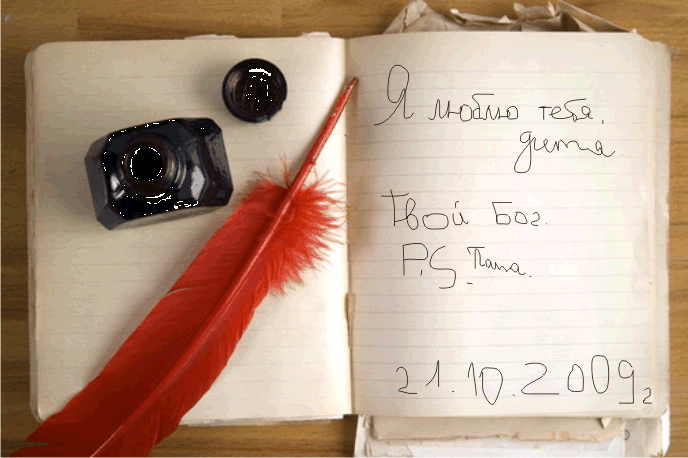 Я люблю тебя,
дитя.
Твой Бог.
P.S. Папа.
21.10.2009г